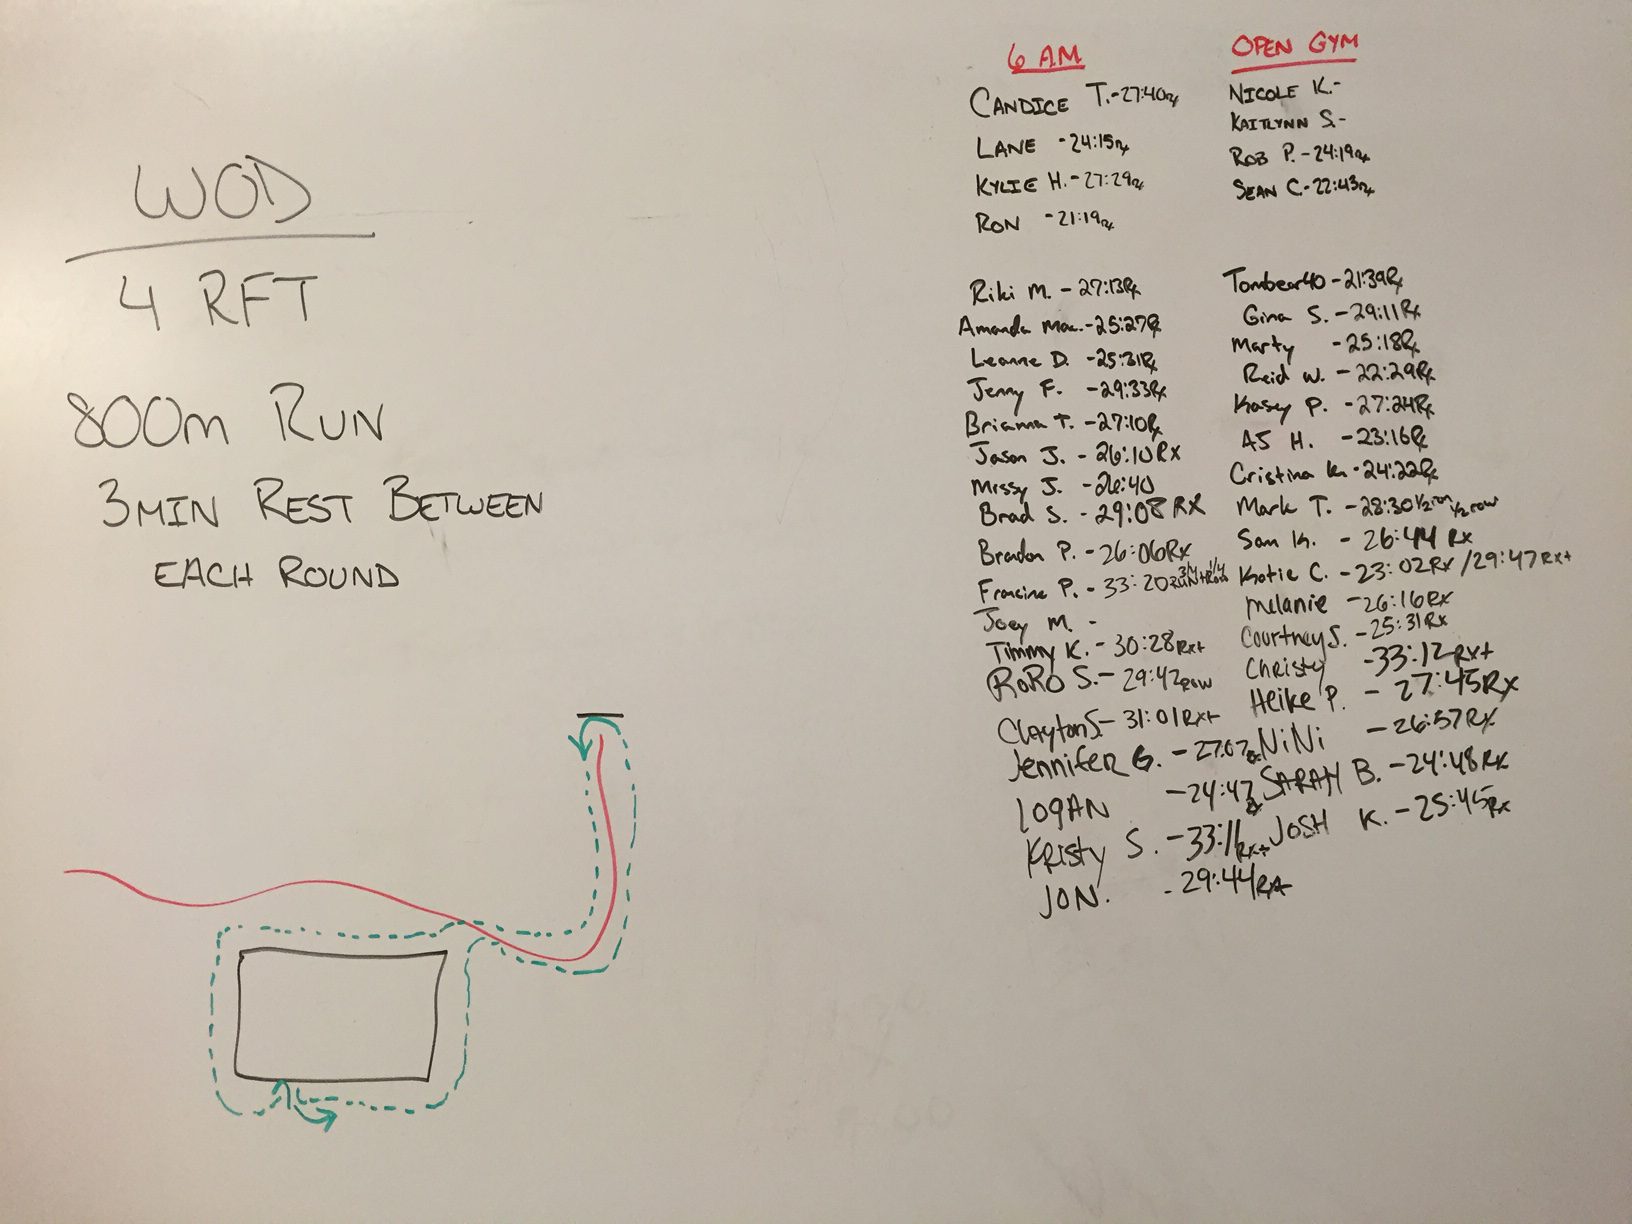 WOD
4 RFT
800m RUN
3 MIN REST BETWEEN
EACH ROUND
6 AM
CANDICE T. - 27:40 Rx
LANE - 24:15 Rx
KYLIE H. - 27:29 Rx
RON - 21:19 Rx
Riki M. - 27:13 Rx
Amanda Mac. - 25:27 Rx
Leanne D. - 25:31 Rx
Jenny F. - 29:33 Rx
Brianna T. - 27:10 Rx
Jason J. - 26:10 RX
Missy J. - 26:40
Brad S. - 29:08 RX
Brandon P. - 26:06 Rx
Francine P. - 33:20 3/4 RUN + 1/4 Row
Joey M. -
Timmy K. - 30:28 Rx+
RoRo S. - 29:42 row
Clayton S. - 31:01 Rx+
Jennifer G. - 27:07 Rx
LOGAN - 24:47 Rx
Kristy S. - 33:16 Rx+
JON. - 29:44 Rx
OPEN GYM
NICOLE K. -
KAITLYNN S. -
ROB P. - 24:19 Rx
SEAN C. - 22:43 Rx
Tombear40 - 21:39 Rx
Gina S. - 29:11 Rx
Marty - 25:18 Rx
Reid W. - 22:29 Rx
Kasey P. - 27:24 Rx
AJ H. - 23:16 Rx
Cristina K. - 24:22 Rx
Mark T. - 28:30 1/2 run 1/2 row
Sam K. - 26:44 Rx
Katie C. - 23:02 Rx / 29:47 Rx+
Melanie - 26:16 Rx
Courtney S. - 25:31 Rx
Christy - 33:12 Rx+
Heike P. - 27:45 Rx
NiNi - 26:57 Rx
SARAH B. - 24:48 Rx
JOSH K. - 25:45 Rx